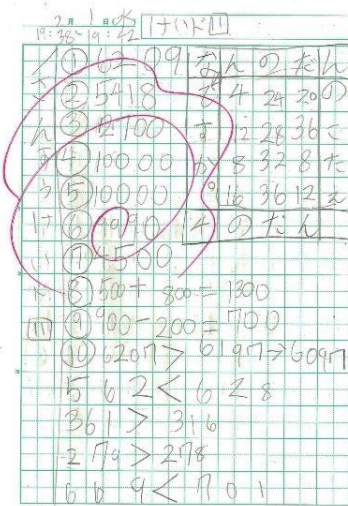 2月1日水 けいド11
19:38~19:42
① 6209
② 5418
③ 2100
④ 10000
⑤ 10000
⑥ 9910
⑦ 500
⑧ 500+800=1300
⑨ 900-200=700
⑩ 6207>6197>6097
562<628
361>316
279>278
669<701
なんのだん
4 24 20 の
12 28 36 こ
8 32 8 た
16 36 12 え
4のだん